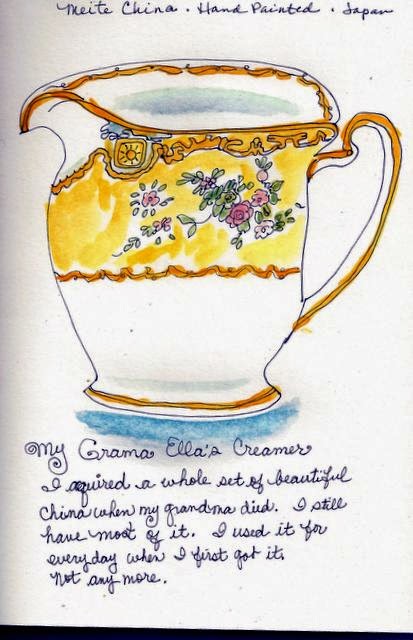 Meite China · Hand Painted · Japan
My Grama Ella's Creamer
I aquired a whole set of beautiful
china when my grandma died. I still
have most of it. I used it for
everyday when I first got it.
Not any more.